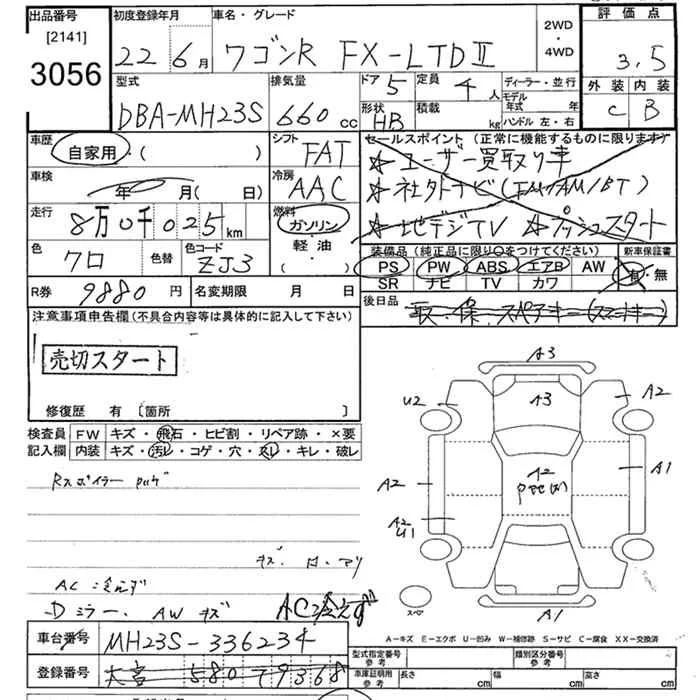 出品番号 初度登録年月 車名・グレード 2WD・4WD 評価点
[2141]
3056 22年6月 ワゴンR FX-LTDⅡ 3.5
型式 排気量 ドア 5 定員 4人 ディーラー・並行 外装 内装
DBA-MH23S 660cc 形状 HB 積載 kg モデル年式 年 ハンドル 左・右 C B
車歴 自家用・( ) シフト FAT セールスポイント (正常に機能するものに限ります)
☆ユーザー買取り車
車検 年 月(日) 冷房 AAC ☆社外ナビ(FM/AM/BT)
走行 8万0千025km 燃料 ガソリン・軽油・( ) ☆地デジTV ☆プッシュスタート
色 クロ 色替 色コード ZJ3 装備品(純正品に限り○をつけてください) 新車保証書
PS PW ABS エアB AW 有・無
SR ナビ TV カワ
R券 9880円 名変期限 月 日 後日品 取・保、スペアキー(スマートキー)
注意事項申告欄(不具合内容等は具体的に記入して下さい)
売切スタート
修復歴 有 [箇所 ]
検査員 FW キズ・飛石・ヒビ割・リペア跡・×要
記入欄 内装 キズ・汚レ・コゲ・穴・スレ・キレ・破レ
Rスポイラー
AC冷えず
Dミラー、AWキズ AC冷えず
A3
U2 A3 A2
A2 A2 A1
A2
U1
スペア A1
A-キズ E-エクボ U-凹み W-補修跡 S-サビ C-腐食 XX-交換済
車台番号 MH23S-336234
登録番号 大宮 580 ワ 9368
型式指定番号 参考 類別区分番号 参考
車庫証明用 参考 長さ 幅 高さ